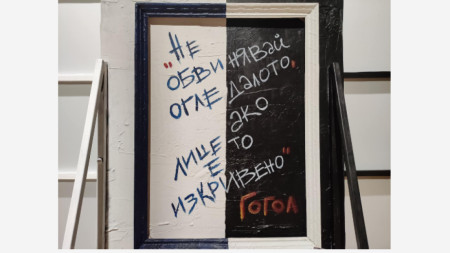 "НЕ
ОБВИНЯВАЙ
ОГЛЕДАЛОТО,
АКО
ЛИЦЕТО
Е
ИЗКРИВЕНО"
ГОГОЛ